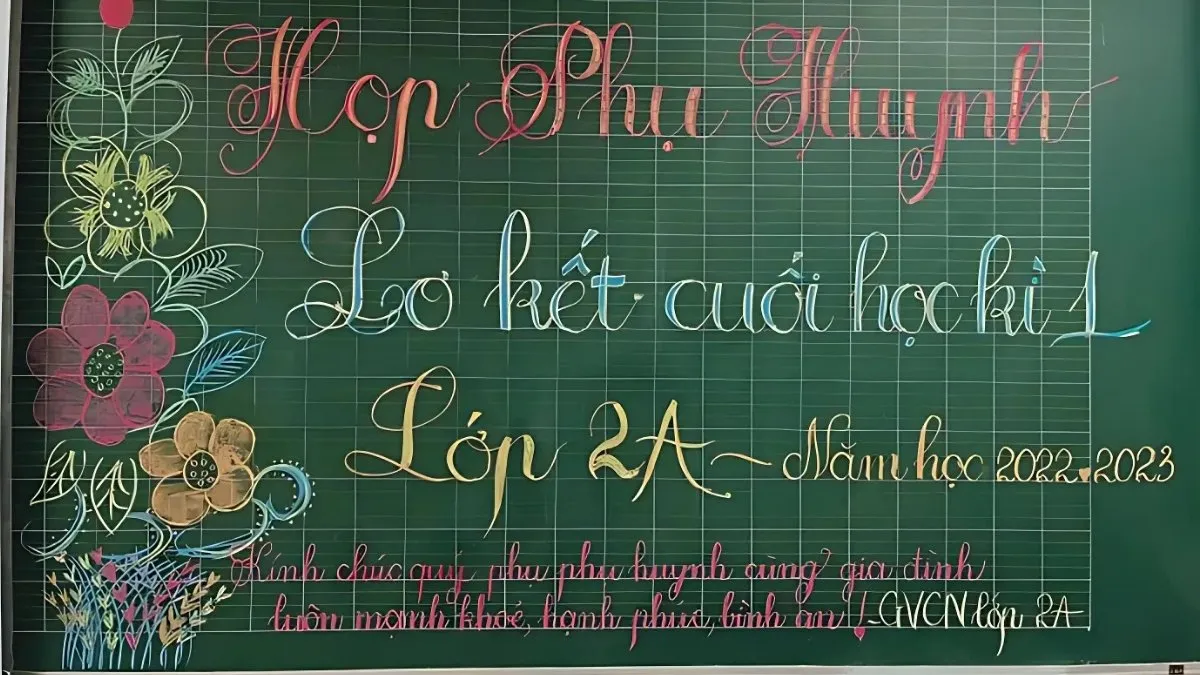 Họp Phụ Huynh
Sơ kết cuối học kì 1
Lớp 2A ~ Năm học 2022.2023
Kính chúc quý phụ phụ huynh cùng gia đình
luôn mạnh khoẻ, hạnh phúc, bình an! - GVCN lớp 2A